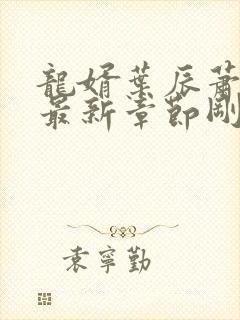 龍婿葉辰蕭
最新章節剛
袁寧勤